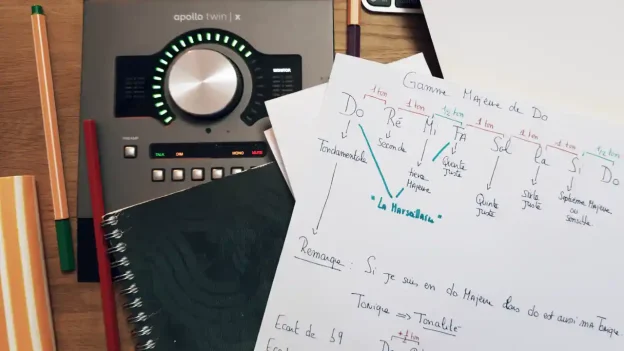 apollo twin | x
TALK DIM MONO MUTE
Gamme Majeure de Do
1 ton 1 ton 1/2 ton 1 ton 1 ton 1 ton 1/2 ton
Do Ré Mi FA Sol la Si Do
Tondamentale Seconde tierce Majeure Quinte juste Quinte juste sixte juste Septième Majeure ou sensible
"La Marseillaise"
Remarque : Si je suis en do Majeur dans do est aussi ma Tonique
Tonique => Tonalité
+1 ton
Ecart de b9 Do
Ecart